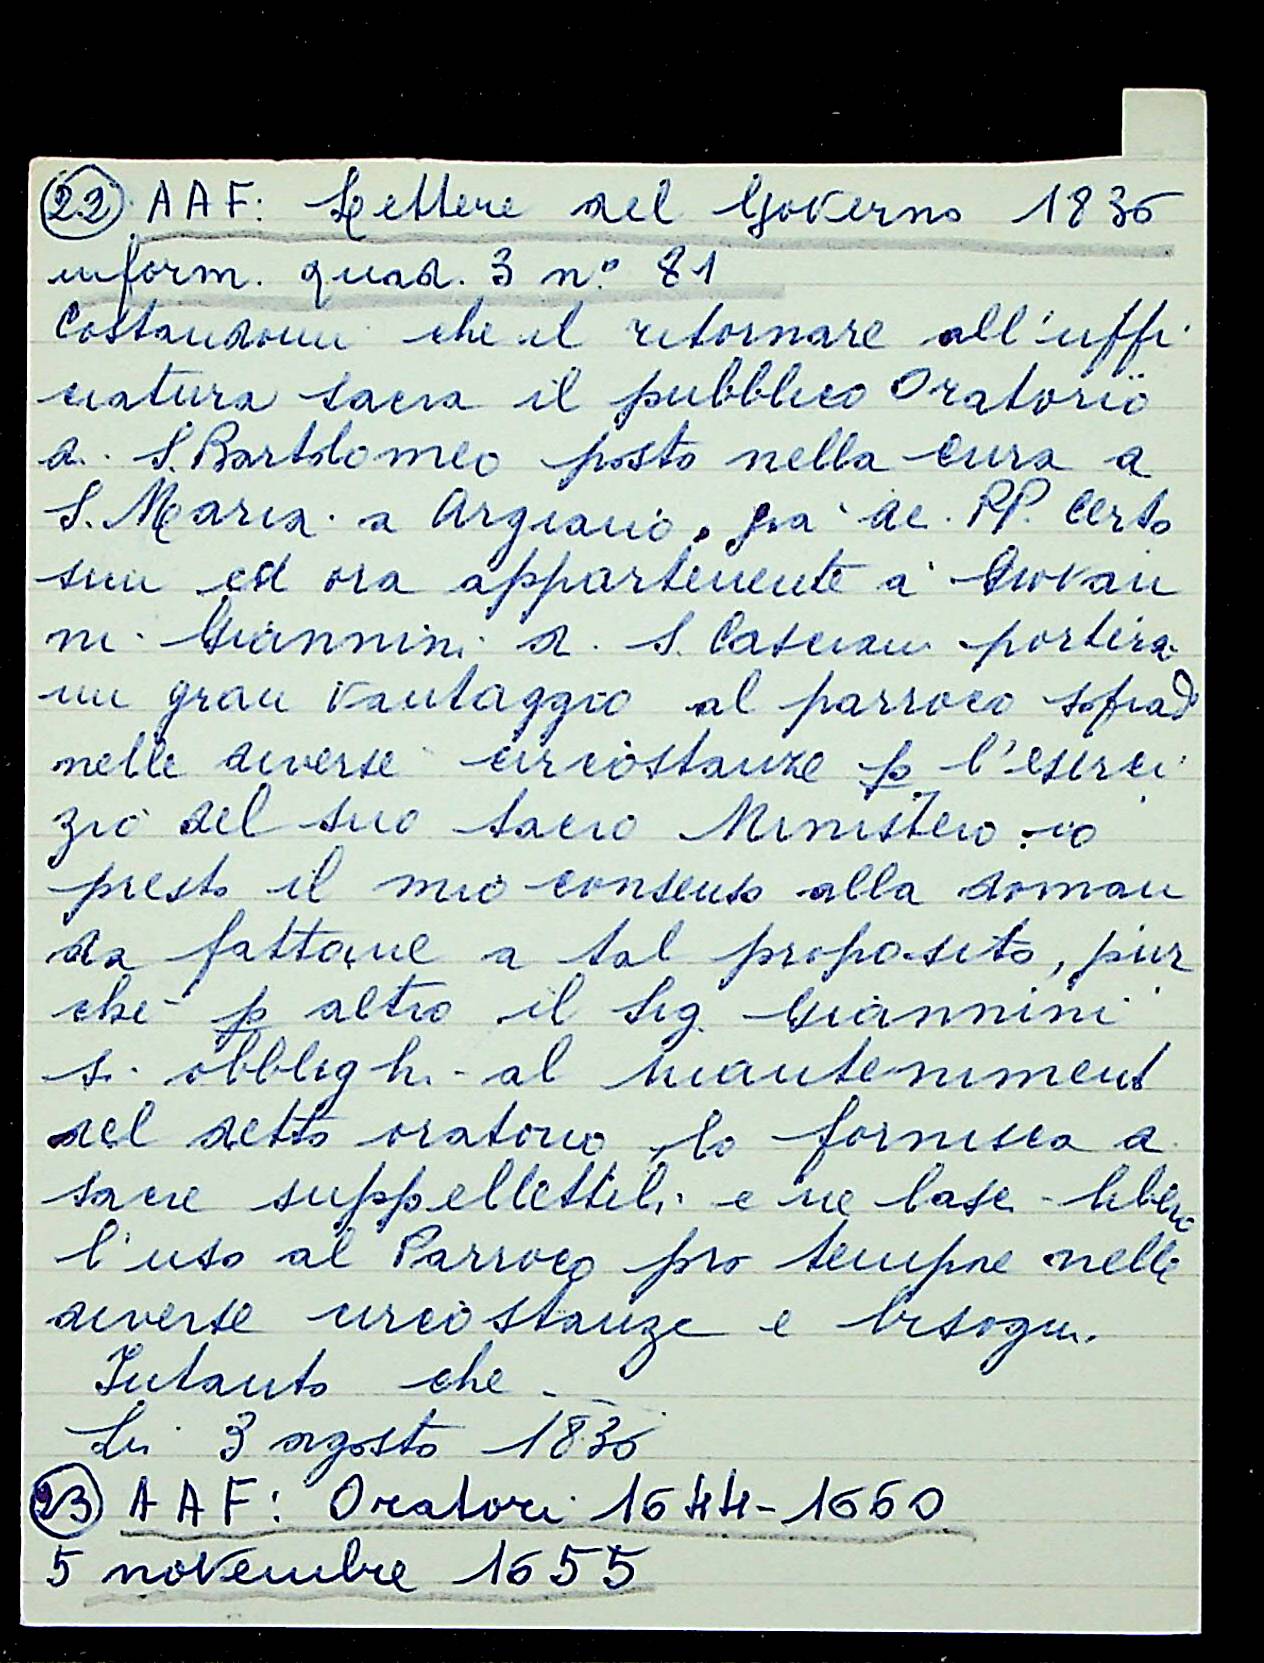 22) AAF: Lettere del Governo 1836
inform. quad. 3 n.° 81
Costandomi che il ritornare all'uffi
ciatura sacra il pubblico Oratorio
di S. Bartolomeo posto nella cura di
S. Maria a Argiano, già de PP. Certo
sini ed ora appartenente a Giovan
ni Giannini di S. Casciano porterà
un gran vantaggio al parroco
nelle diverse circostanze p l'eserci
zio del suo sacro Ministero io
presto il mio consenso alla doman
da fattane a tal proposito, pur
chè p altro il Sig. Giannini
si obblighi al mantenimento
del detto oratorio, lo fornisca di
sacre suppellettili e ne lasci libero
l'uso al Parroco pro tempore nelle
diverse circostanze e bisogni.
Intanto che
Li 3 agosto 1836
23) AAF: Oratori 1644-1660
5 novembre 1655